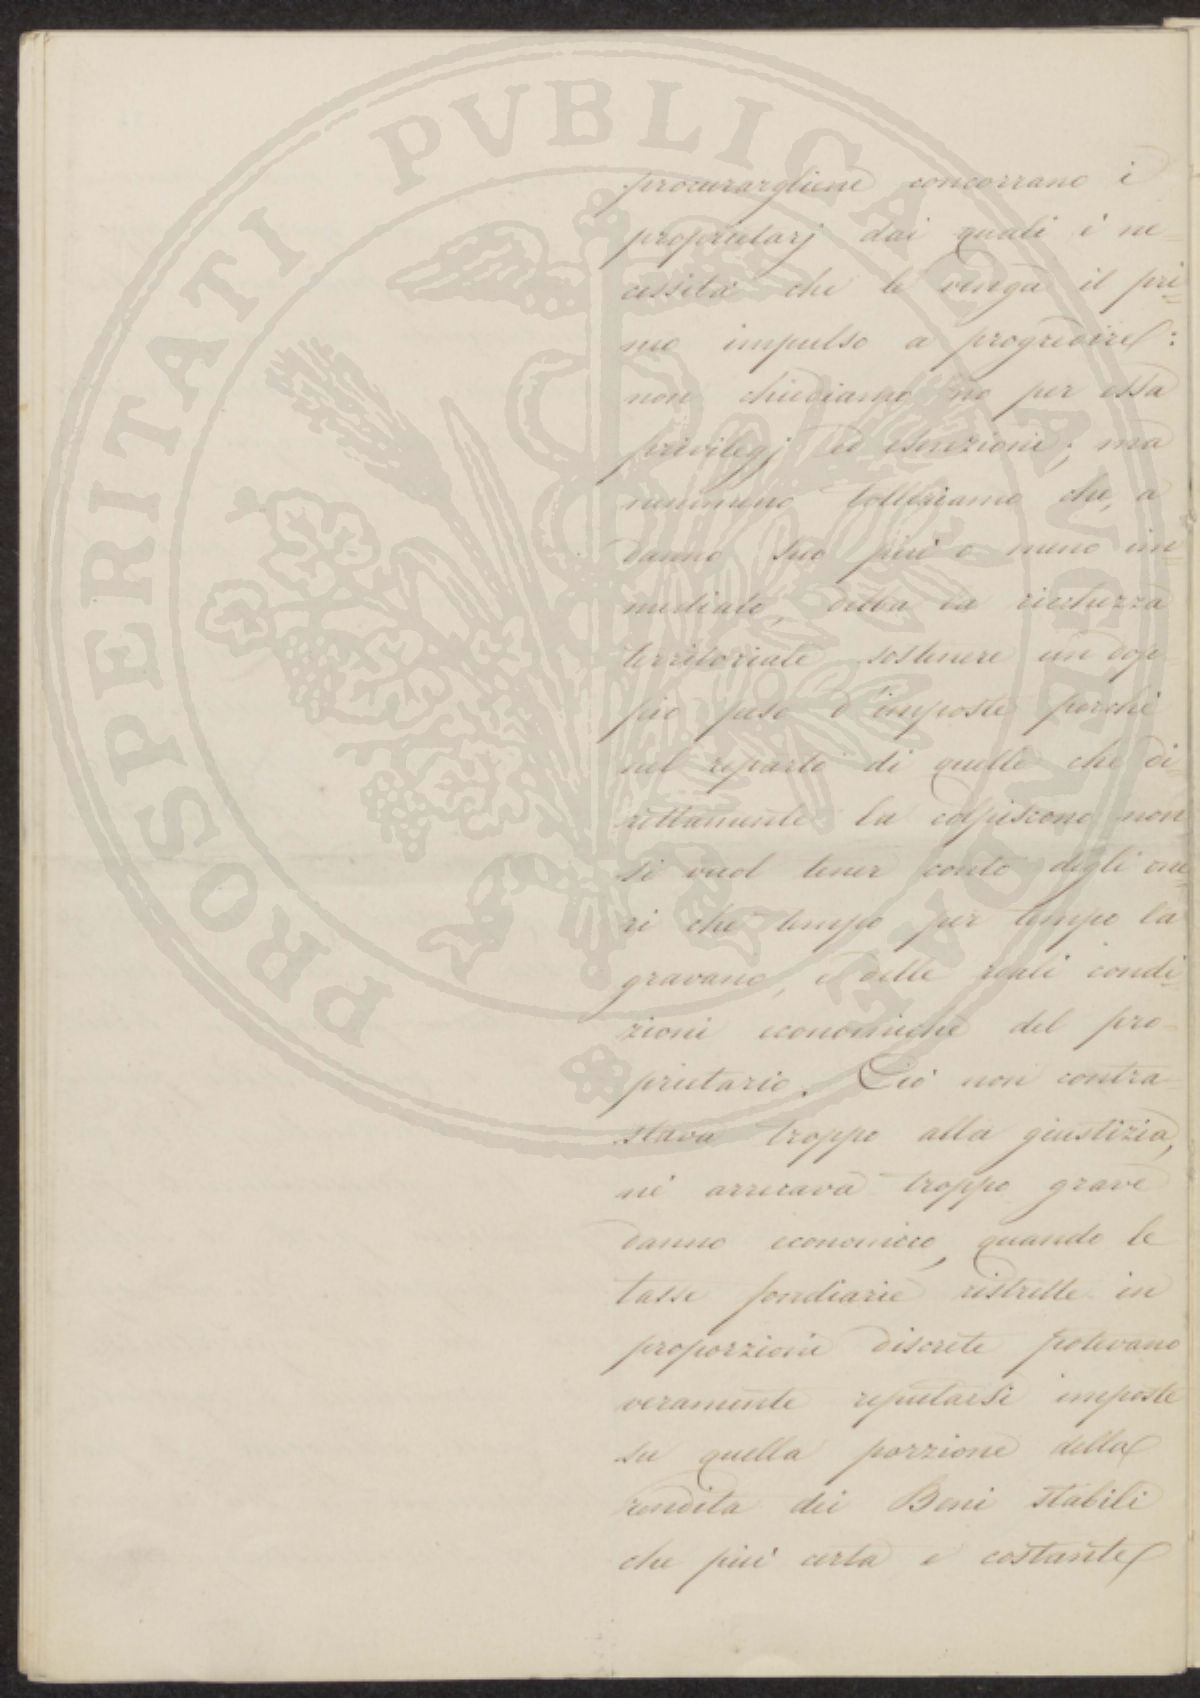 procurargliene concorrano i
proprietarj dai quali è ne-
cessità che le venga il pri=
mo impulso a progredire:
non chiediamo no per essa
privilegj ed esenzioni; ma
nemmeno tolleriamo che, a
danno suo più o meno im=
mediato, debba la ricchezza
territoriale sostenere un dop-
pio peso d'imposte perchè
nel reparto di quelle che di-
rettamente la colpiscono non
si vuol tener conto degli one=
ri che tempo per tempo la
gravano, e delle reali condi=
zioni economiche del pro-
prietario. Ciò non contra-
stava troppo alla giustizia,
nè arrecava troppo grave
danno economico, quando le
tasse fondiarie ristrette in
proporzioni discrete potevano
veramente reputarsi imposte
su quella porzione della
rendita dei Beni stabili
che più certa e costante
PROSPERITATI PVBLICAE AVGENDAE